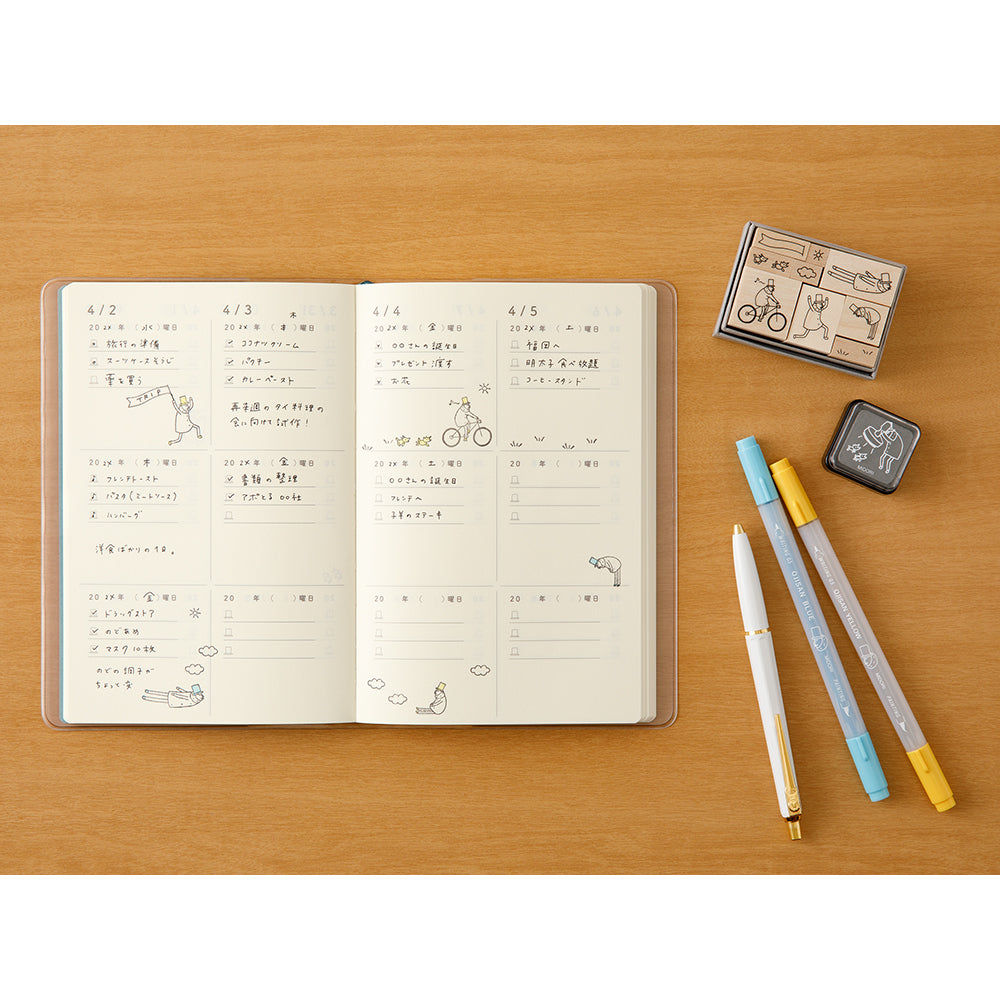 4/2
202X年 (水)曜日
旅行の準備
スーツケースそうじ
薬を買う
TRIP
4/3
木
202X年 (木)曜日
ココナツクリーム
パクチー
カレーペースト
再来週のタイ料理の
会に向けて試作!
4/4
202X年 (金)曜日
○○さんの誕生日
プレゼント渡す
お花
4/5
202X年 (土)曜日
福岡へ
明太子食べ放題
コーヒースタンド
202X年 (木)曜日
フレンチトースト
パスタ(ミートソース)
ハンバーグ
洋食ばかりの1日。
202X年 (金)曜日
書類の整理
アポとる ○○社
202X年 (土)曜日
○○さんの誕生日
フレンチへ
子羊のステーキ
20 年 ( )曜日
202X年 (金)曜日
ドラッグストア
のどあめ
マスク10枚
のどの調子が
ちょっと変
20 年 ( )曜日
20 年 ( )曜日
20 年 ( )曜日
MIDORI
WRITING 0.5 OJISAN BLUE MIDORI PAINTING
WRITING 0.5 OJISAN YELLOW MIDORI PAINTING